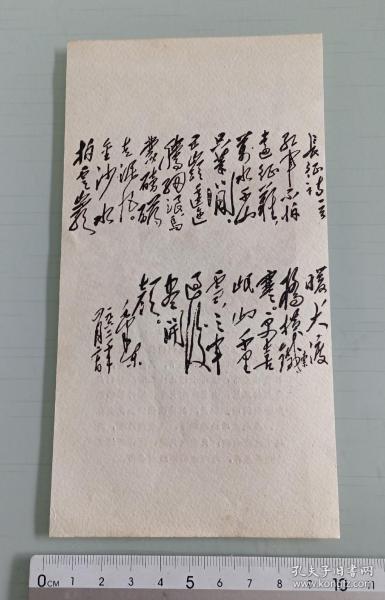 長征詩一首
紅軍不怕
遠征難，
萬水千山
只等閑。
五嶺逶迤
騰細浪，烏
蒙磅礴
走泥丸。
金沙水
拍雲崖
暖，大渡
橋橫鐵索
寒。更喜
岷山千里
雪，三軍
過後
盡開
顏。
毛澤東
一九六二年
0CM 1 2 3 4 5 6 7 8 9 10 11
孔夫子旧书网